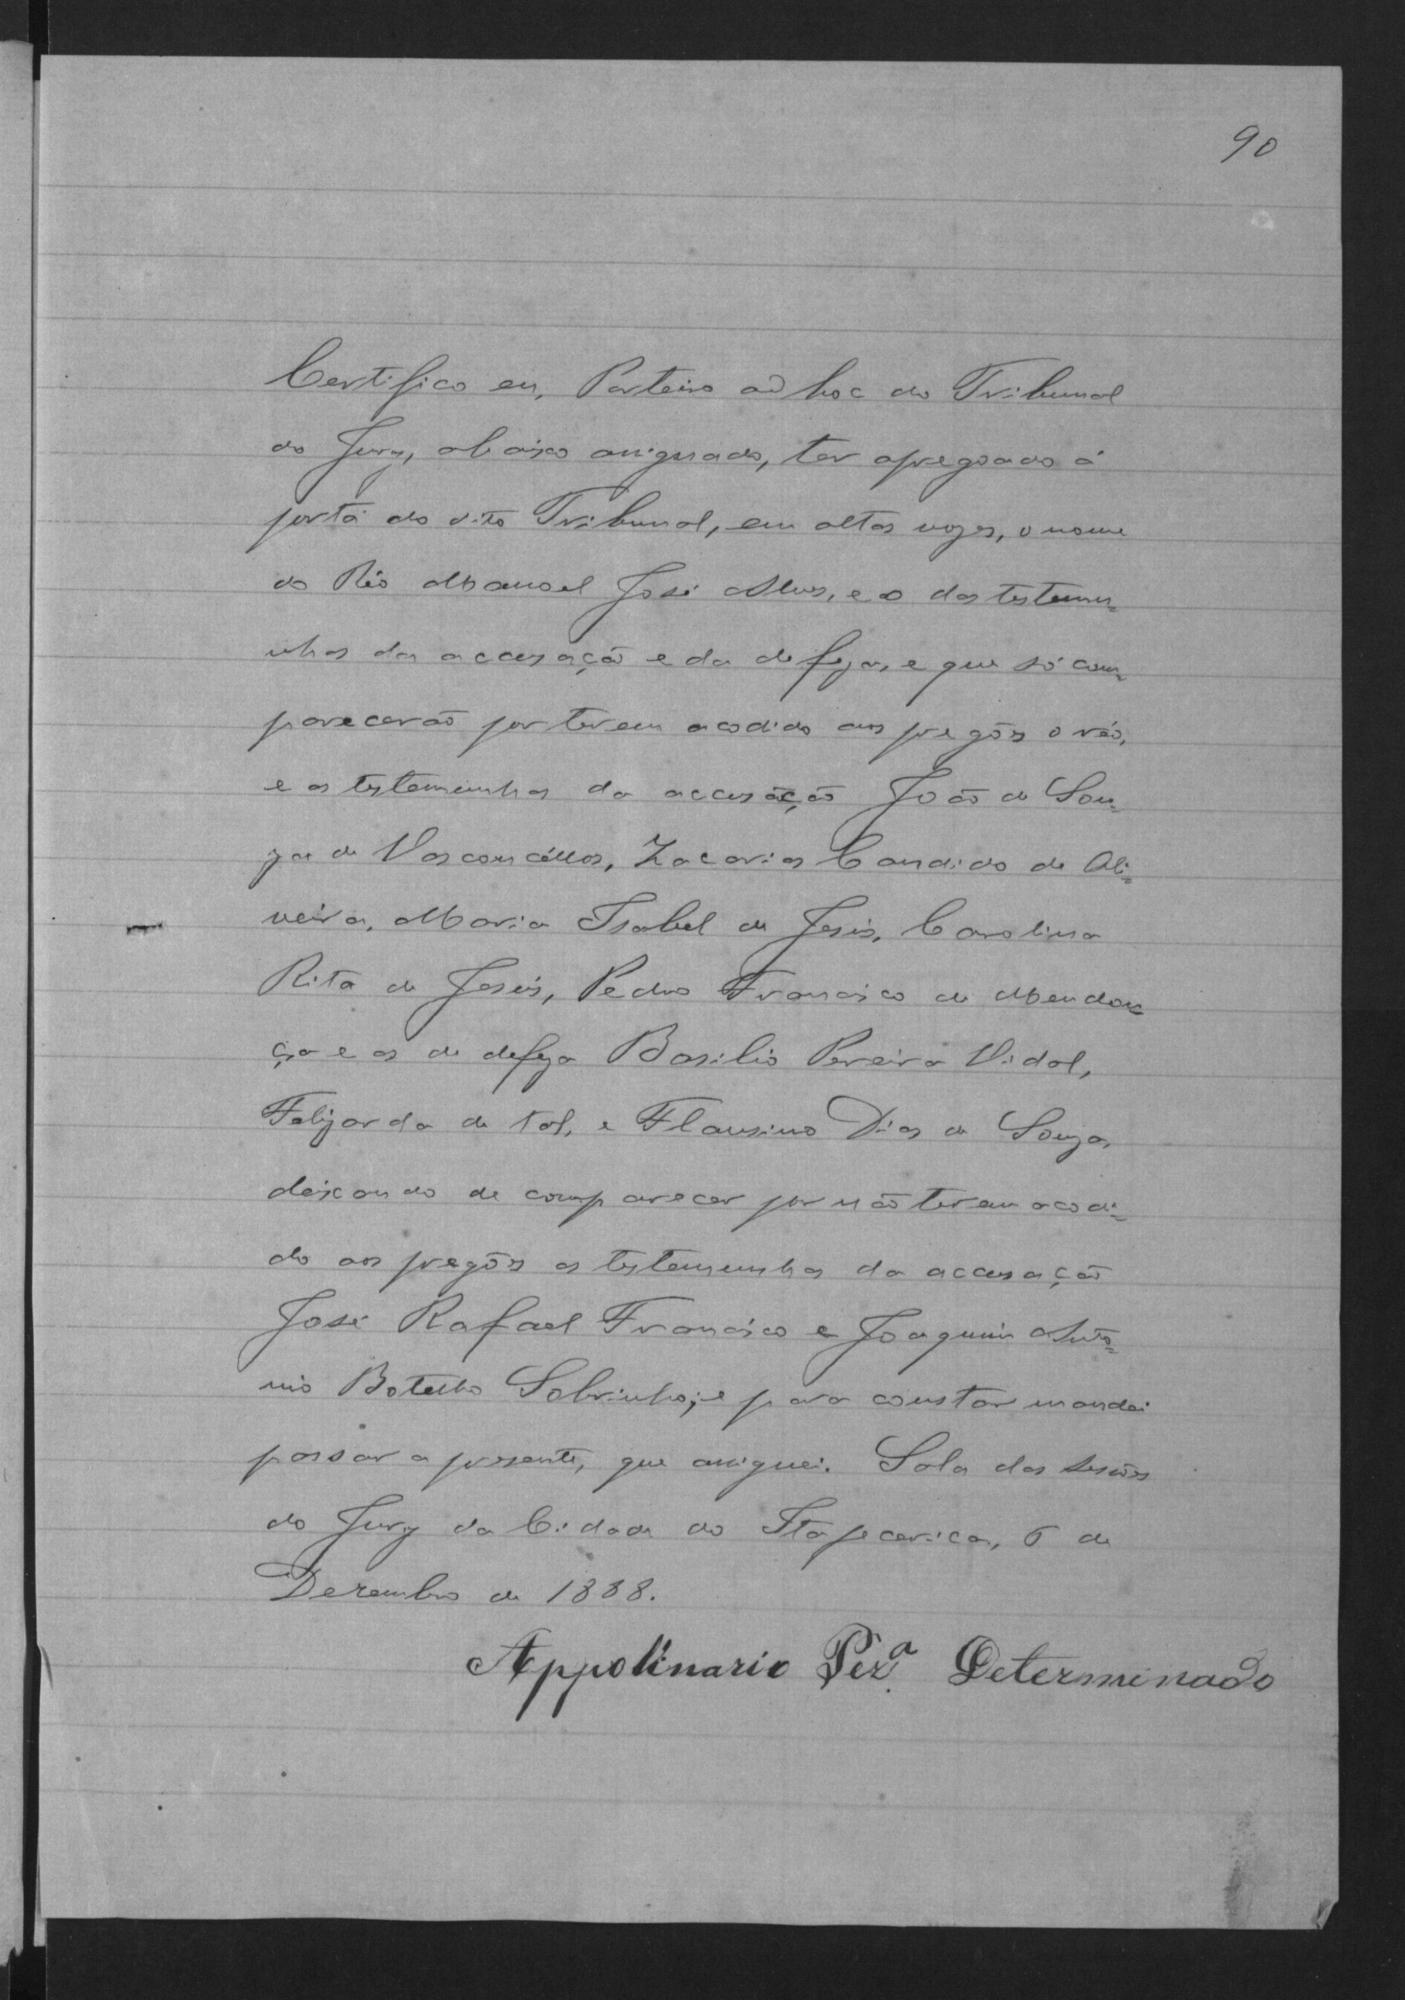 90
Certifico eu, Porteiro ad hoc do Tribunal
do Jury, abaixo assignado, ter apregoado á
porta do dito Tribunal, em altas vozes, o nome
do Réo Manoel José Alves, e o das testemu=
nhas da accusação e da defeza, e que só com=
parecerão por terem acodido aos pregões o réo,
e as testemunhas da accusação João de Sou=
za de Vasconcéllos, Zacarias Candido de Oli=
veira, Maria Isabel de Jesús, Carolina
Rita de Jesús, Pedro Francisco de Mendon=
ça e as de defeza Basilio Pereira Vidal,
Felizarda de tal, e Flausino Dias de Souza,
deixando de comparecer por não terem acodi=
do aos pregões as testemunhas da accusação
José Rafael Francisco e Joaquim Anto=
nio Botelho Sobrinho; e para constar mandei
passar a presente, que assignei. Sala das sessões
do Jury da Cidade do Itapecerica, 6 de
Dezembro de 1888.
Appolinario Per.ª Determinado